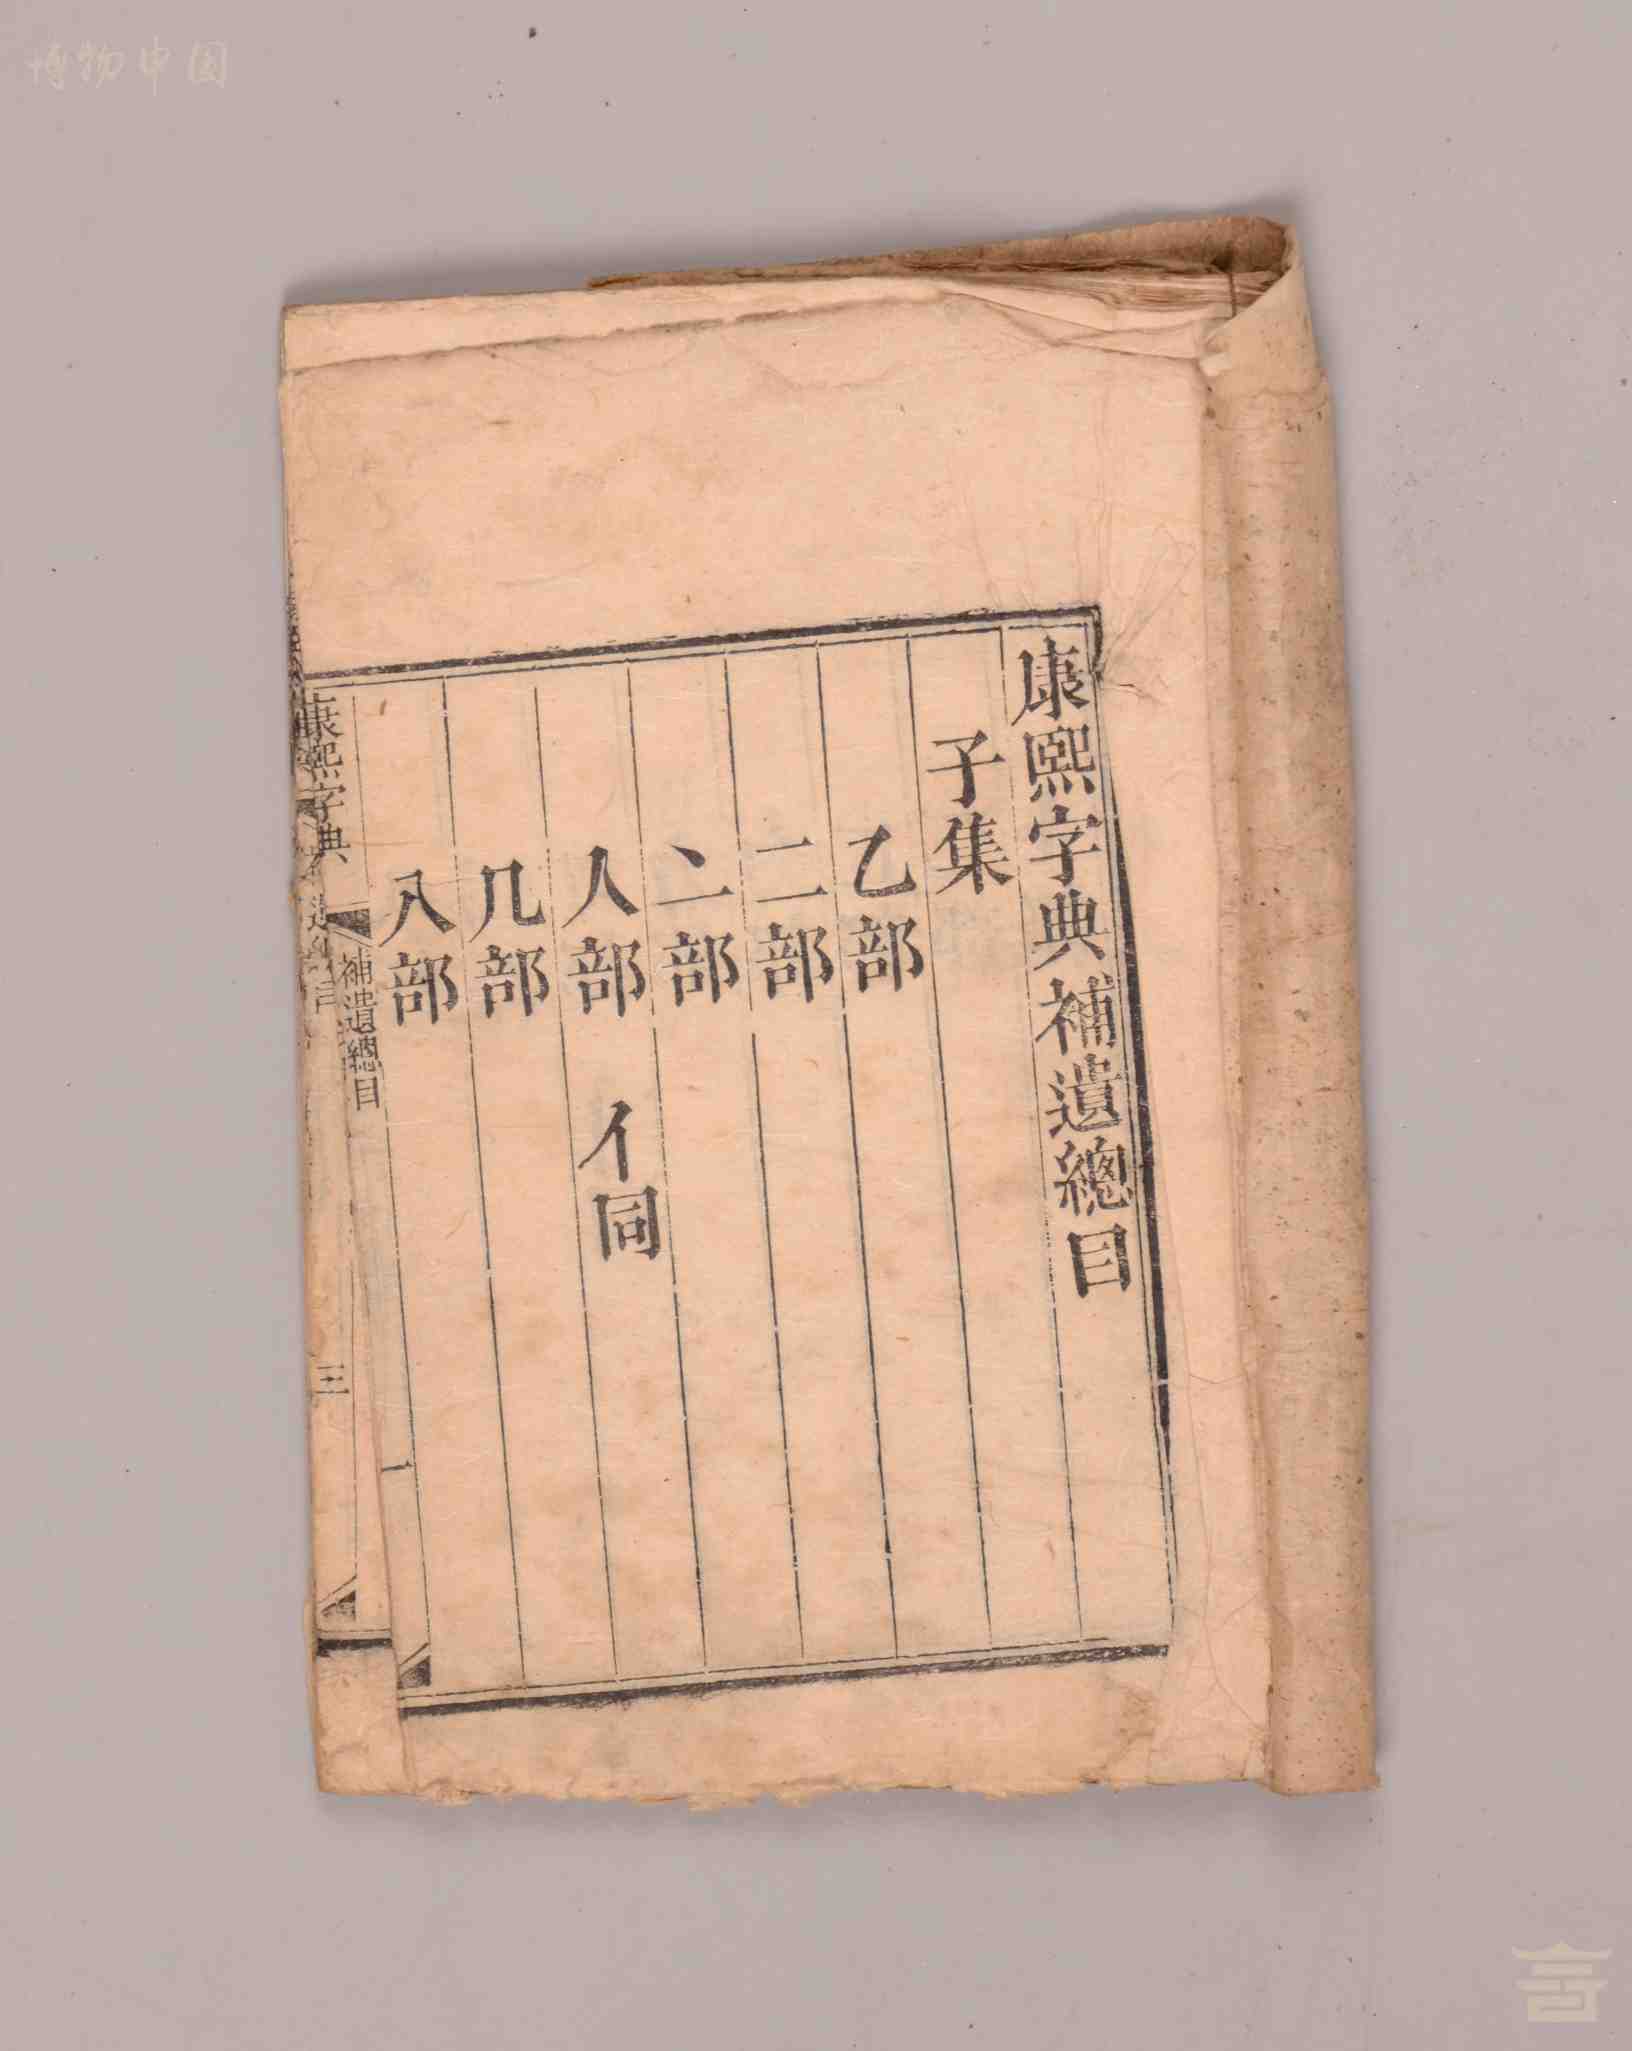 博物中国
康熙字典補遺總目
子集
乙部
二部
亠部
人部 亻同
几部
入部
康熙字典
補遺總目
一
康熙字典
三